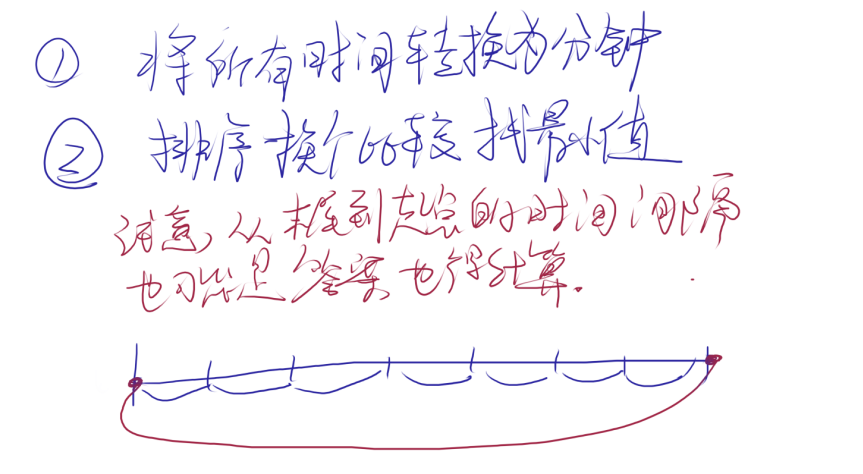 ① 将所有时间转换为分钟
② 排序 挨个比较 找最小值
注意,从末尾到起点的时间间隔
也可能是答案 也得计算.